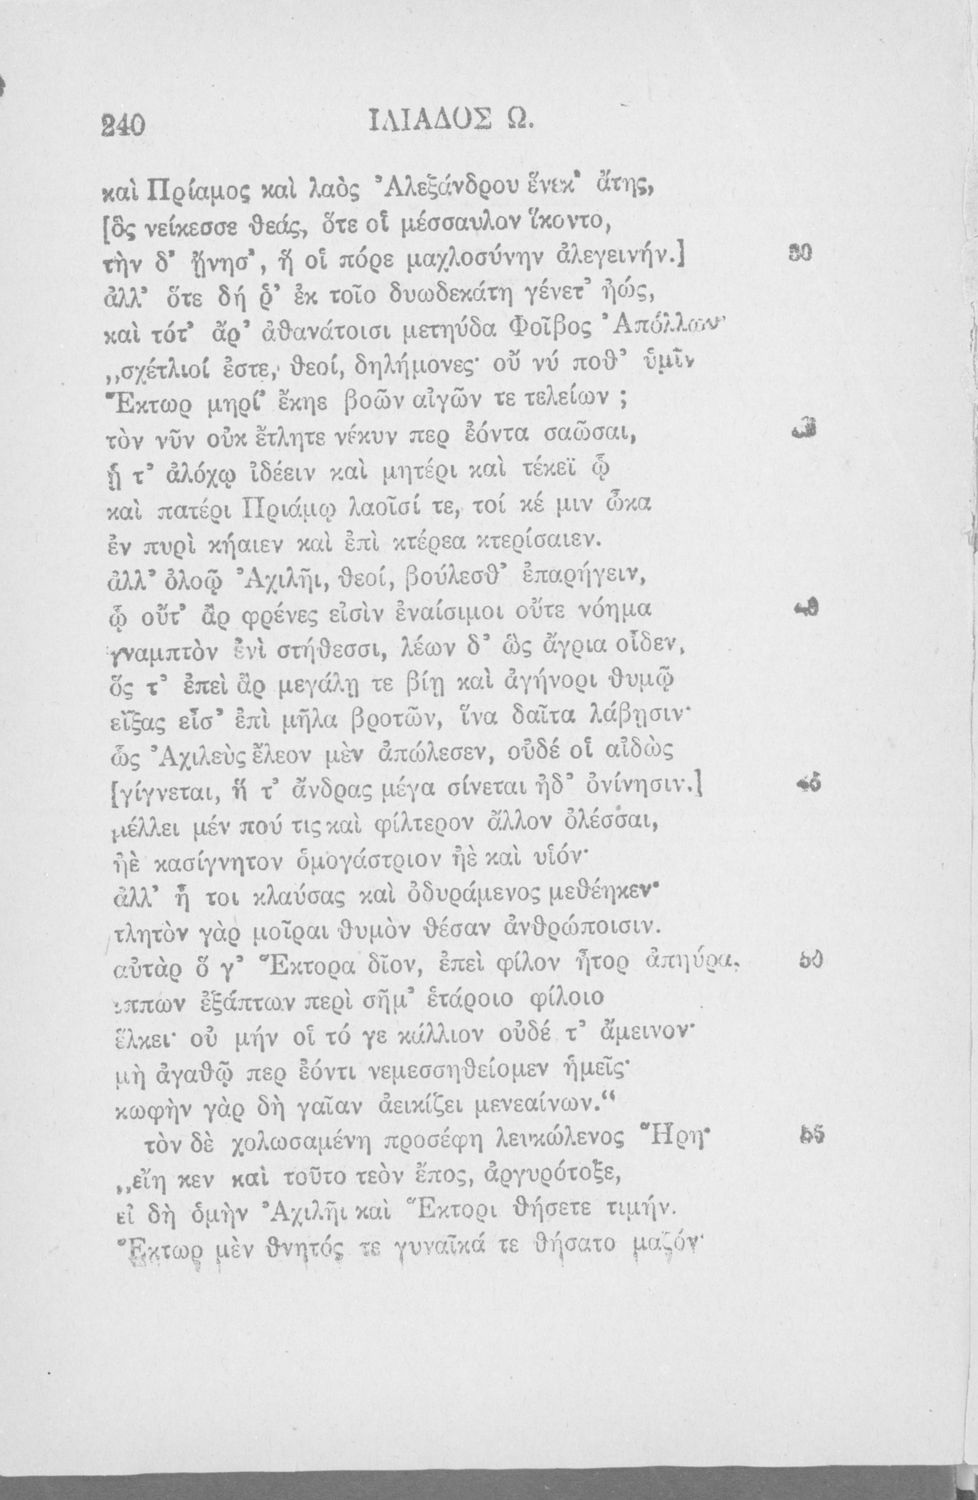 240 ΙΛΙΑΔΟΣ Ω.
καὶ Πρίαμος καὶ λαὸς Ἀλεξάνδρου ἕνεκ' ἄτης,
[ὃς νείκεσσε θεάς, ὅτε οἱ μέσσαυλον ἵκοντο,
τὴν δ' ᾔνησ', ἥ οἱ πόρε μαχλοσύνην ἀλεγεινήν.] 30
ἀλλ' ὅτε δή ῥ' ἐκ τοῖο δυωδεκάτη γένετ' ἠώς,
καὶ τότ' ἄρ' ἀθανάτοισι μετηύδα Φοῖβος Ἀπόλλων·
„σχέτλιοί ἐστε, θεοί, δηλήμονες· οὔ νύ ποθ' ὑμῖν
Ἕκτωρ μηρί' ἔκηε βοῶν αἰγῶν τε τελείων ;
τὸν νῦν οὐκ ἔτλητε νέκυν περ ἐόντα σαῶσαι,
ᾗ τ' ἀλόχῳ ἰδέειν καὶ μητέρι καὶ τέκεϊ ᾧ
καὶ πατέρι Πριάμῳ λαοῖσί τε, τοί κέ μιν ὦκα
ἐν πυρὶ κήαιεν καὶ ἐπὶ κτέρεα κτερίσαιεν.
ἀλλ' ὀλοῷ Ἀχιλῆι, θεοί, βούλεσθ' ἐπαρήγειν,
ᾧ οὔτ' ἂρ φρένες εἰσὶν ἐναίσιμοι οὔτε νόημα 40
γναμπτὸν ἐνὶ στήθεσσι, λέων δ' ὣς ἄγρια οἶδεν,
ὅς τ' ἐπεὶ ἂρ μεγάλῃ τε βίῃ καὶ ἀγήνορι θυμῷ
εἴξας εἶσ' ἐπὶ μῆλα βροτῶν, ἵνα δαῖτα λάβῃσιν·
ὣς Ἀχιλεὺς ἔλεον μὲν ἀπώλεσεν, οὐδέ οἱ αἰδὼς
[γίγνεται, ἥ τ' ἄνδρας μέγα σίνεται ἠδ' ὀνίνησιν.] 45
μέλλει μέν πού τις καὶ φίλτερον ἄλλον ὀλέσσαι,
ἠὲ κασίγνητον ὁμογάστριον ἠὲ καὶ υἱόν·
ἀλλ' ἦ τοι κλαύσας καὶ ὀδυράμενος μεθέηκεν·
τλητὸν γὰρ μοῖραι θυμὸν θέσαν ἀνθρώποισιν.
αὐτὰρ ὅ γ' Ἕκτορα δῖον, ἐπεὶ φίλον ἦτορ ἀπηύρα, 50
ἵππων ἐξάπτων περὶ σῆμ' ἑτάροιο φίλοιο
ἕλκει· οὐ μήν οἱ τό γε κάλλιον οὐδέ τ' ἄμεινον·
μὴ ἀγαθῷ περ ἐόντι νεμεσσηθείομεν ἡμεῖς·
κωφὴν γὰρ δὴ γαῖαν ἀεικίζει μενεαίνων.“
τὸν δὲ χολωσαμένη προσέφη λευκώλενος Ἥρη· 55
„εἴη κεν καὶ τοῦτο τεὸν ἔπος, ἀργυρότοξε,
εἰ δὴ ὁμὴν Ἀχιλῆι καὶ Ἕκτορι θήσετε τιμήν.
Ἕκτωρ μὲν θνητός τε γυναῖκά τε θήσατο μαζόν·